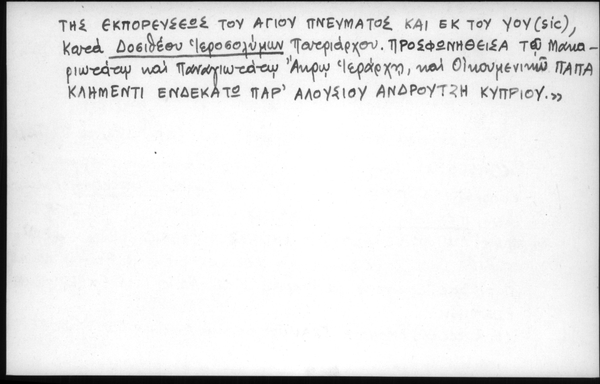 ΤΗΣ ΕΚΠΟΡΕΥΣΕΩΣ ΤΟΥ ΑΓΙΟΥ ΠΝΕΥΜΑΤΟΣ ΚΑΙ ΕΚ ΤΟΥ ΥΟΥ (sic),
Κατά Δοσιθέου Ἱεροσολύμων Πατριάρχου. ΠΡΟΣΦΩΝΗΘΕΙΣΑ Τῷ Μακα-
ριωτάτῳ καί Παναγιωτάτῳ Ἄκρῳ Ἱεράρχῃ, καί Οἰκουμενικῷ ΠΑΠΑ
ΚΛΗΜΕΝΤΙ ΕΝΔΕΚΑΤΩ ΠΑΡ' ΑΛΟΥΣΙΟΥ ΑΝΔΡΟΥΤΖΗ ΚΥΠΡΙΟΥ.»